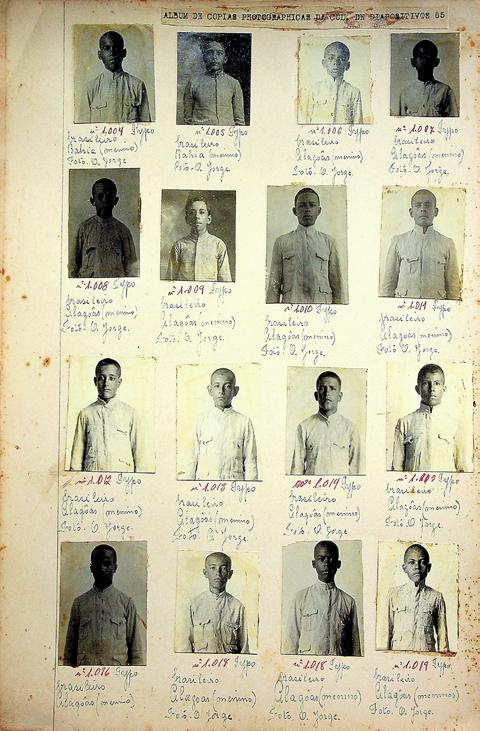 ALBUM DE COPIAS PHOTOGRAPHICAS DA COL. DE DIAPOSITIVOS 65
nº 1.004 Typo
brasileiro
Bahia (menino)
Foto. O. Jorge
nº 1.005 Typo
brasileiro
Bahia (menino)
Foto. O. Jorge
nº 1.006 Typo
brasileiro
Alagôas (menino)
Foto. O. Jorge.
nº 1.007 Typo
brasileiro
Alagôas (menino)
Foto. O. Jorge.
nº 1.008 Typo
brasileiro
Alagôas (menino)
Foto. O. Jorge.
nº 1.009 Typo
brasileiro
Alagôas (menino)
Foto. O. Jorge.
nº 1.010 Typo
brasileiro
Alagôas (menino)
Foto. O. Jorge.
nº 1.011 Typo
brasileiro
Alagôas (menino)
Foto. O. Jorge.
nº 1.012 Typo
brasileiro
Alagôas (menino)
Foto. O. Jorge.
nº 1.013 Typo
brasileiro
Alagôas (menino)
Foto. O. Jorge.
nº 1.014 Typo
brasileiro
Alagôas (menino)
Foto. O. Jorge
Typo
brasileiro
Alagôas (menino)
Foto. O. Jorge.
nº 1.016 Typo
brasileiro
Alagôas (menino)
nº 1.017 Typo
brasileiro
Alagôas (menino)
Foto. O. Jorge
nº 1.018 Typo
brasileiro
Alagôas (menino)
Foto. O. Jorge.
nº 1.019 Typo
brasileiro
Alagôas (menino)
Foto. O. Jorge.